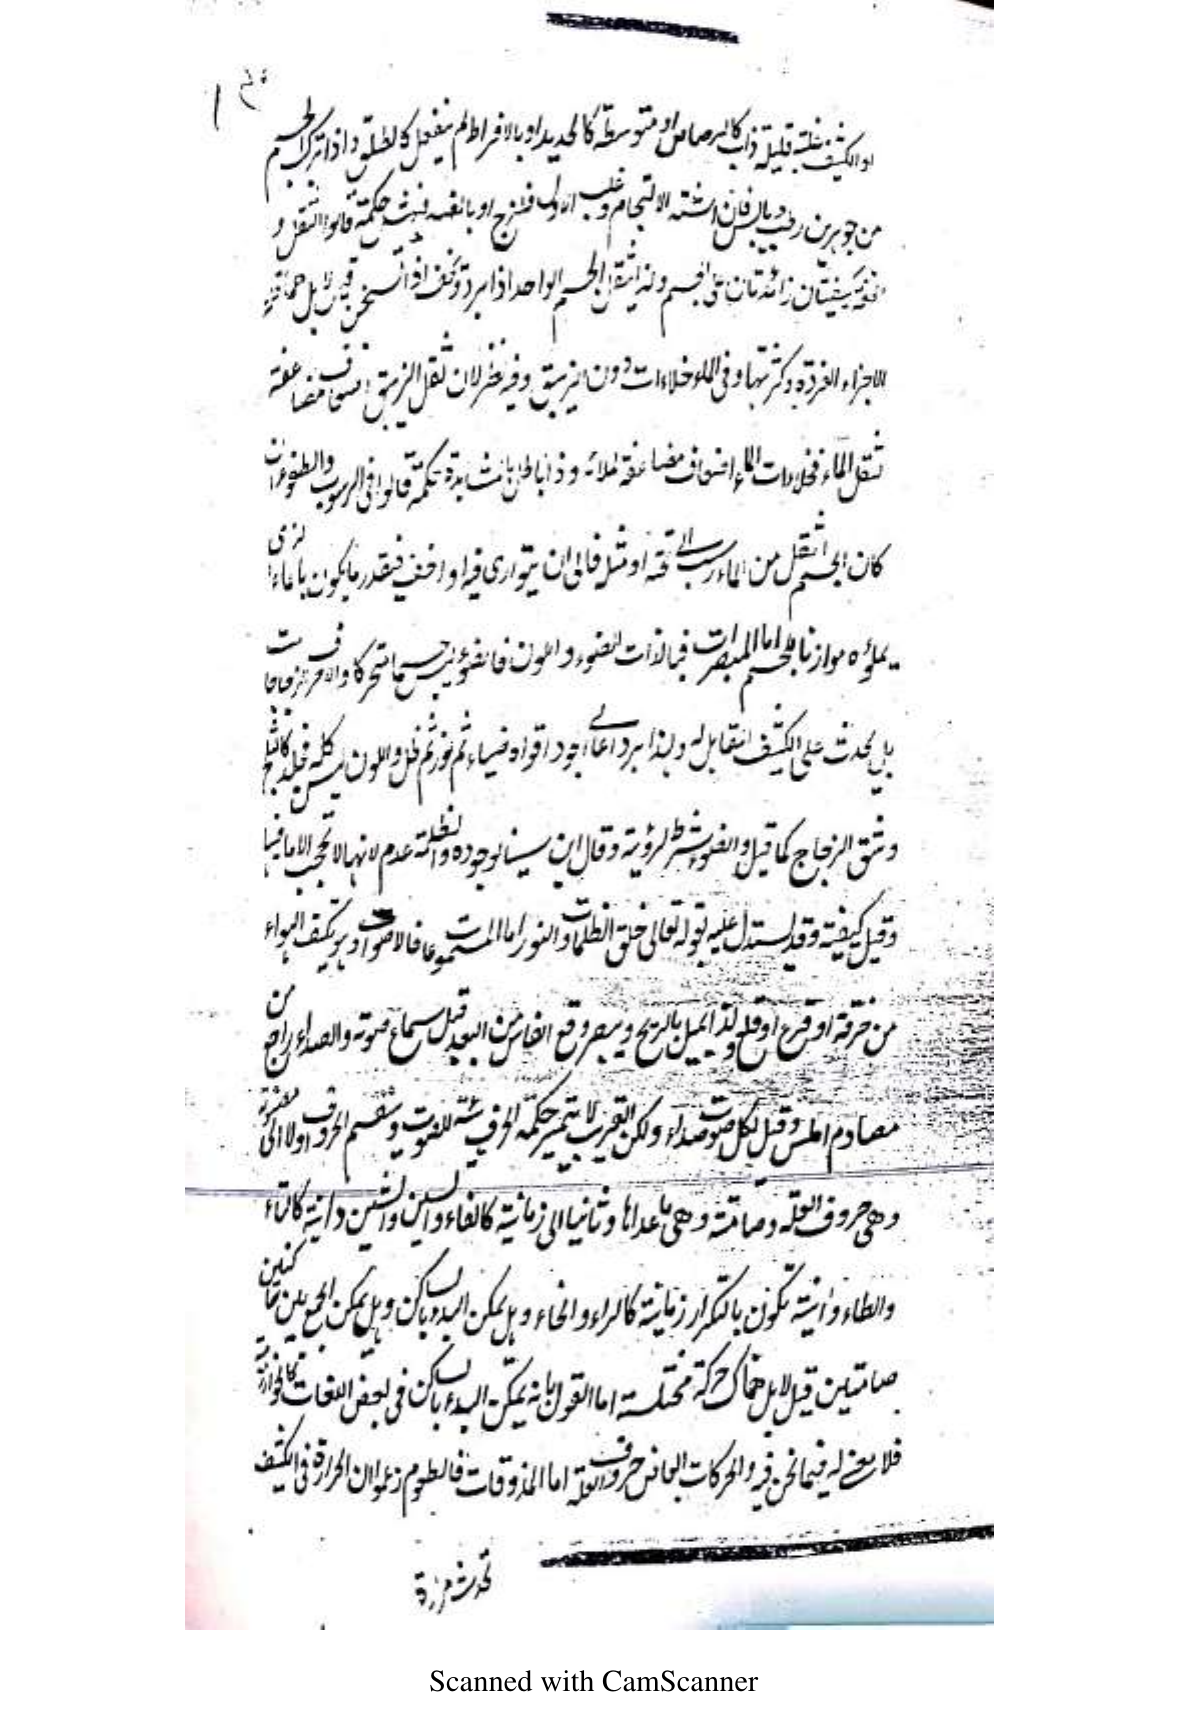 او الكثيف غلبة قليلة ذاب كالرصاص او متوسطة كالحديد او بالافراط لم ينفعل كالطلق واذا تركب الجسم
من جوهرين رطب ويابس فان اشتد الالتحام وغلب فلزج او بالعكس فهش حكمة قالوا الثقل و
الخفة كيفيتان زائدتان على الجسم ولذا يثقل الجسم الواحد اذا برد ويخف اذا تسخن قيل لا بل هما قلة
الاجزاء الفردة وكثرتها وفي الماء خلاءات دون الزيبق وفيه نظر لان ثقل الزيبق اضعاف مضاعفة
ثقل الماء فخلاءات الماء اضعاف مضاعفة لملائه وذا باطل بالمشاهدة حكمة قالوا في الرسوب والطفو ان
كان الجسم اثقل من الماء رسب الى تحته او مثله فالى ان يتوارى فيه او اخف فبقدر ما يكون الماء الذي
يملؤه موازنا للجسم اما المبصرات فبالذات الضوء واللون فالضوء ليس جسما متحركا والا
بل يحدث على الكثيف المقابل له ولذا يرد اقواه ضياء ثم نور ثم ظل واللون ليس كله فى كالثلج
وشق الزجاج كما قيل والضوء شرط لرؤيته وقال ابن سينا لوجوده والظلمة عدم لانها لا تحجب
وقيل كيفية وقد يستدل عليه بقوله تعالى خلق الظلمات والنور اما المسموعات فالاصوات وهو تكيف الهواء
من خرقة او قرع او قلع ولذا يميل بالريح ويبصر وقع الفاس من البعد قبل سماع صوته والصداء راجع من
مصادم املس وقيل لكل صوت صداء ولكن القريب لا يتميز حكمة الحرف هيئة للصوت وينقسم الحروف اولا الى مصوتة
وهي حروف العلة وصامتة وهي ما عداها وثانيا الى زمانية كالفاء والسين والشين وآنية كالتاء
والطاء وآنية تكون بالتكرار زمانية كالراء والخاء وهل يمكن البدء بالساكن وهل يمكن الجمع بين ساكنين
صامتين قيل لا بل هناك حركة مختلسة اما القول بانه يمكن البدء بالساكن في بعض اللغات كالخوارزمية
فلا معنى له فيما نحن فيه والحركات ابعاض حروف العلة اما المذوقات فالطعوم زعموا ان الحرارة في الكثيف
تحدث مرارة